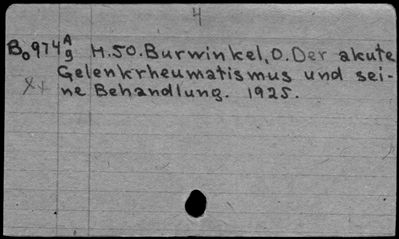 4
Bo974 Ag H.50. Burwinkel, O. Der akute
Gelenkrheumatismus und sei-
xx ne Behandlung. 1925.